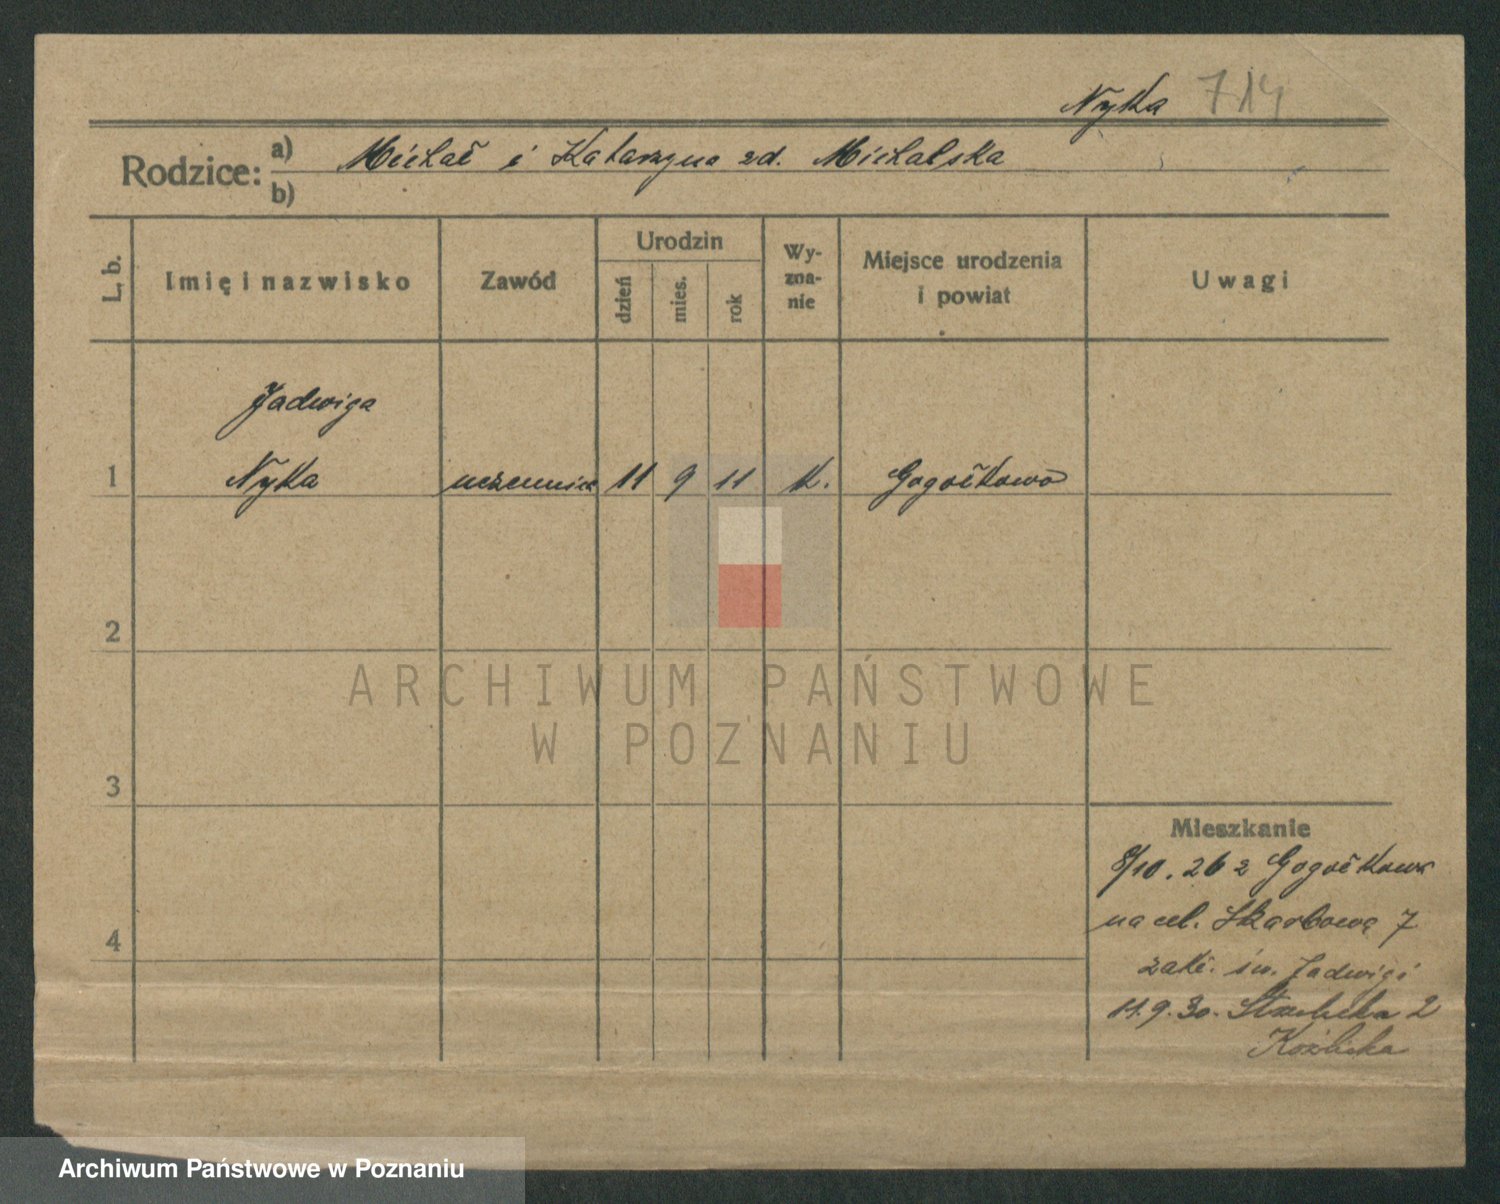 Nyka 714
Rodzice: a) Michał i Katarzyna zd. Michalska
b)
L. b.
Imię i nazwisko
Zawód
Urodzin
dzień
mies.
rok
Wy-
zna-
nie
Miejsce urodzenia
i powiat
Uwagi
Jadwiga
1 Nyka uczennica 11 9 11 k. Gogołkowo
2
3
4
ARCHIWUM PAŃSTWOWE
W POZNANIU
Mieszkanie
8/10. 26 z Gogołkowa
na ul. Skarbową 7
zakł. św. Jadwigi
11.9.30. Strzelecka 2
Koźlicka
Archiwum Państwowe w Poznaniu